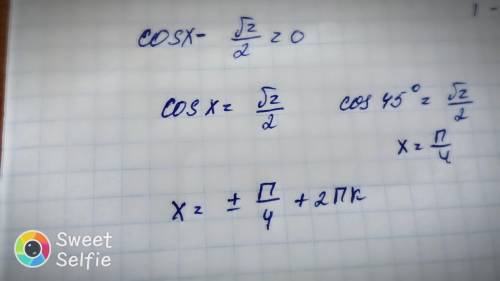 cosx - √2/2 = 0
cosx = √2/2
cos 45° = √2/2
x = П/4
x = ± П/4 + 2Пк
Sweet
Selfie